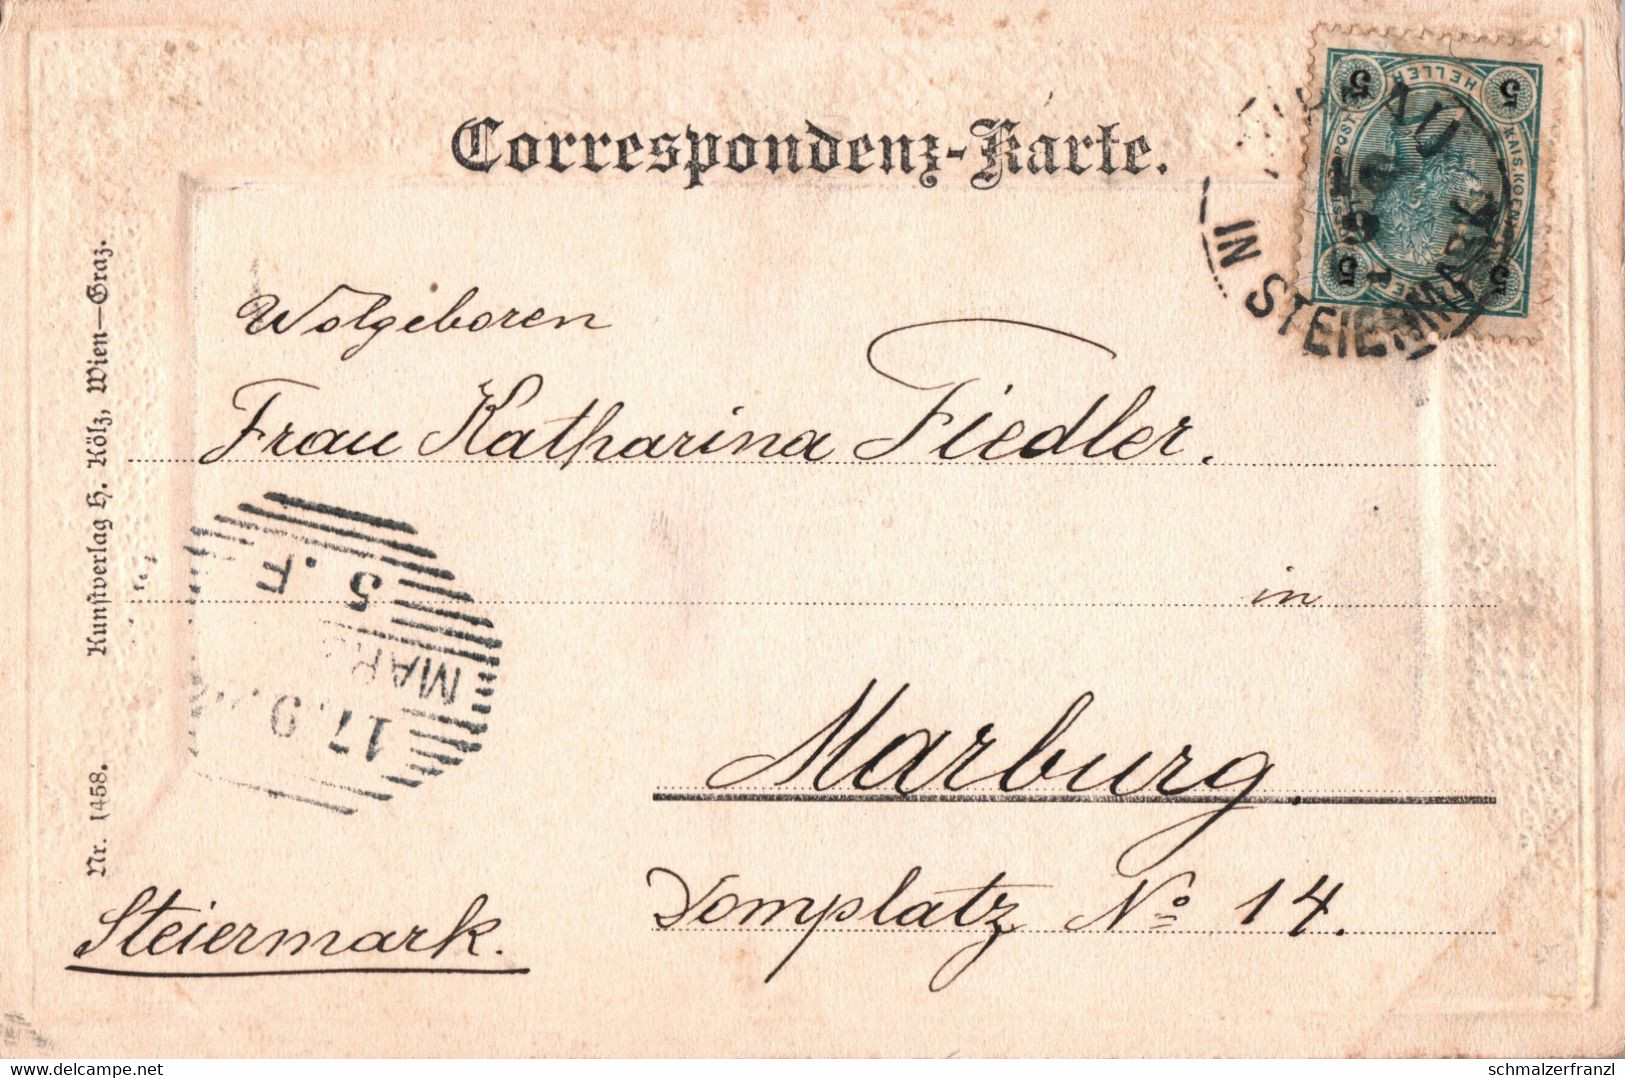 Correspondenz-Karte.
5 HELLER 5
KAIS. KOEN
POST
5 5
AU
IN STEIERMARK
Wolgeboren
Frau Katharina Fiedler.
in
Marburg.
Domplatz No 14.
Steiermark.
5. F
MAR
17. 9.
Nr. 1458. Kunstverlag H. Kölz, Wien—Graz.
delcampe.net
schmalzerfranzl